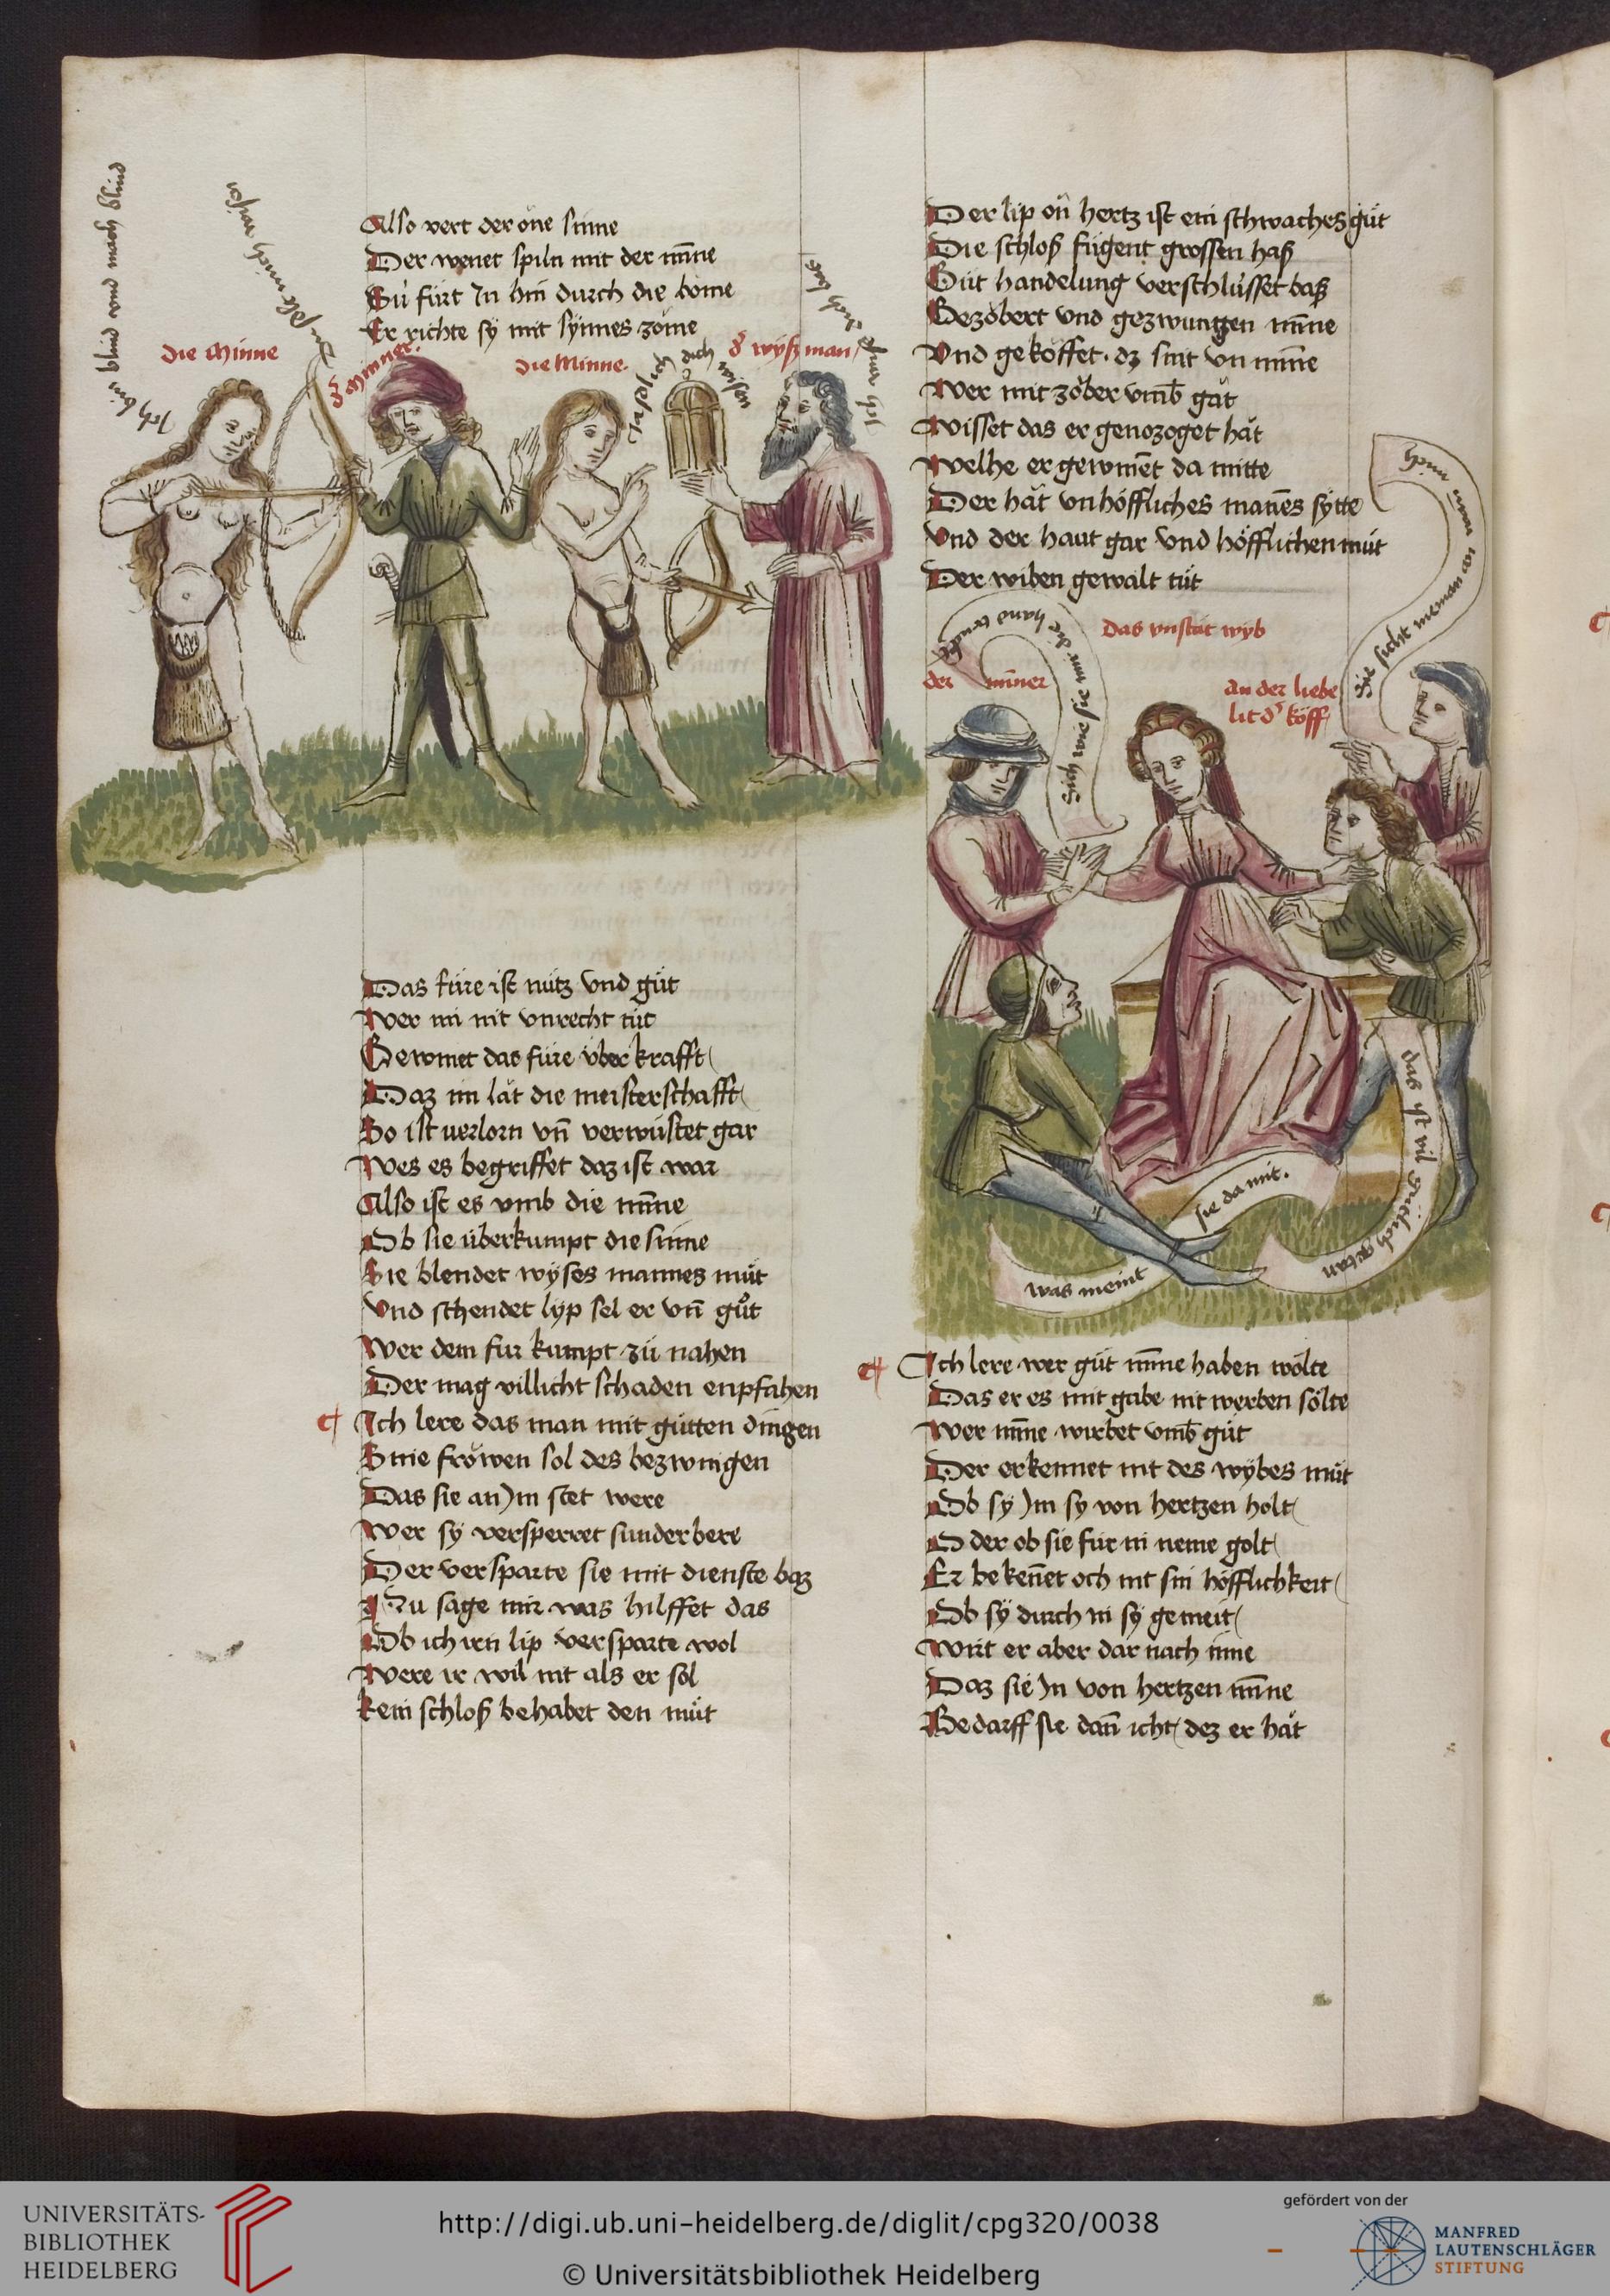 Also vert der one sinne
Der wenet spiln mit der mīne
Sü fürt In hin durch die böme
Er richte sy mit synnes zöme
Ich bin blind vnd mach blind
die Minne
die Minne
Ich dich
Das füre ist nütz vnd güt
Wer im nit vnrecht tüt
Gewinet das füre über krafft
Daz im lät die meisterschafft
So ist verlorn vn̄ verwüstet gar
Wes es begriffet daz ist war
Also ist es vmb die mīne
Ob sie überkumpt die sinne
Sie blendet wyses mannes müt
Vnd schendet lyp sel er vn̄ gůt
Wer dem fur kumpt zü nahen
Der mag villicht schaden enpfahen
Ich lere das man mit gütten dingen
Sine fröwen sol des bezwingen
Das sie an Im stet were
Wer sy versperret sunder bere
Der versparte sie mit dienste baz
Nu sage mir was hilffet das
Ob ich iren lip versparte wol
Were ir wil nit als er sol
kein schloß behabet den müt
Der lip on hertz ist ein schwaches güt
Die schloß fügent grossen haß
Güt handelung verschlüsset baß
Bezöbert vnd gezwungen mīne
Vnd geköffet dz sint vn mīne
Wer mit zöber vmb gät
Wisset das er genozoget hät
Welhe er gewinēt da mitte
Der hät vnhöffliches manēs sytte
Vnd der haut gar vnd höfflichen müt
Der wiben gewalt tüt
das vnstät wyb
der miner
an der liebe
lit dˢ köff
Sich wie sie mir die hand
Sie sicht nieman
das ist vil gütlich getan
was meint sie da mit.
Ich lere wer güt mīne haben wölte
Das er es mit gabe nit werben sölte
Wer mīne wirbet vmb güt
Der erkennet nit des wybes müt
Ob sy Im sy von hertzen holt
Oder ob sie für in neme golt
Er bekeñet och nit sin höfflichkeit
Ob sy durch in sy gemeit
Wirt er aber dar nach inne
Daz sie In von hertzen mīne
Bedarff sie dan̄ icht dez er hät
UNIVERSITÄTS-
BIBLIOTHEK
HEIDELBERG
http://digi.ub.uni-heidelberg.de/diglit/cpg320/0038
© Universitätsbibliothek Heidelberg
gefördert von der
MANFRED
LAUTENSCHLÄGER
STIFTUNG